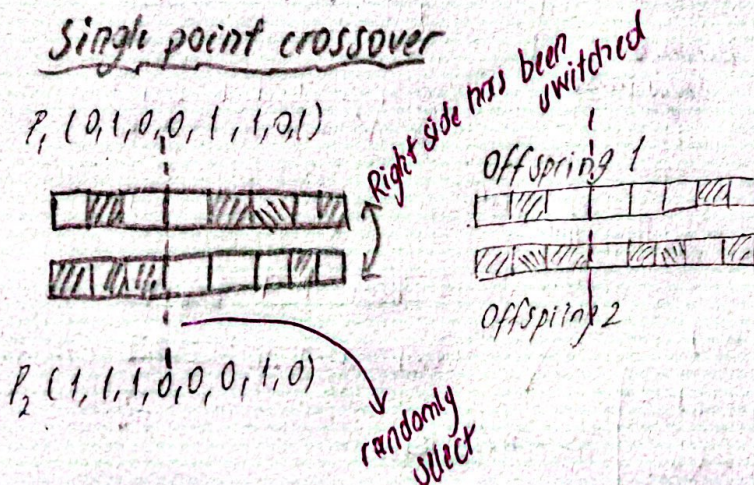 Single point crossover
P₁ (0,1,0,0,1,1,0,1)
Right side has been
switched
Offspring 1
Offspring 2
P₂ (1,1,1,0,0,0,1,0)
randomly
select